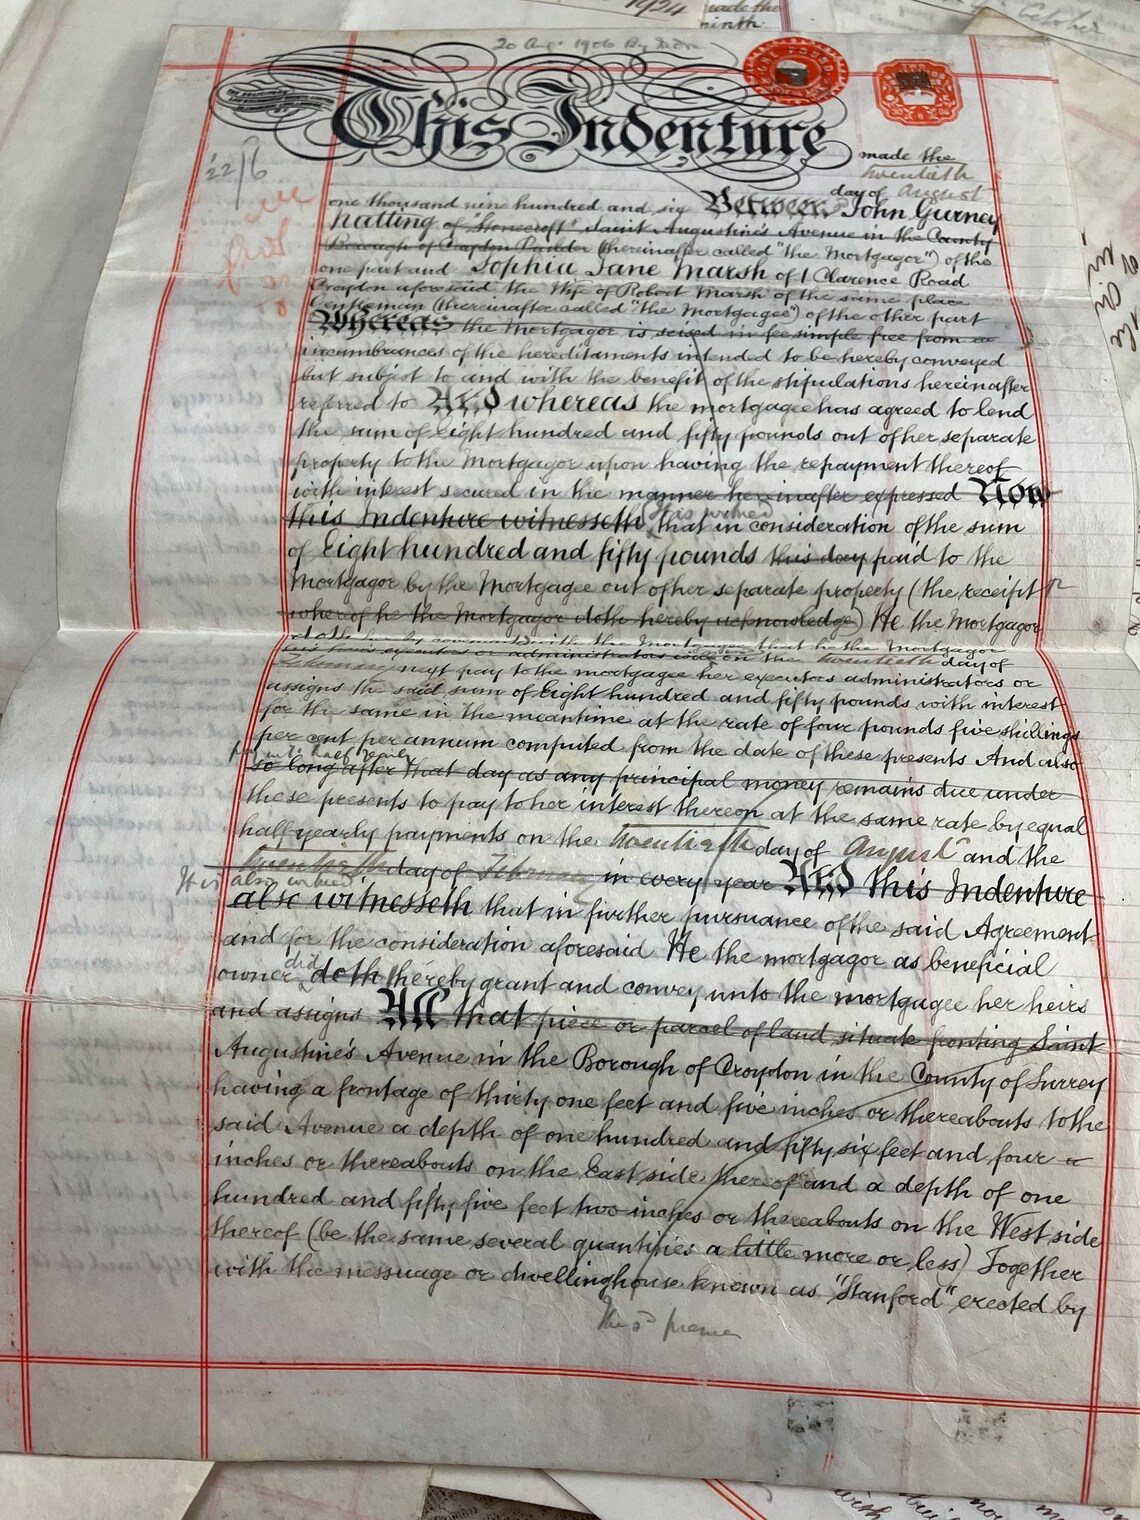 20 Aug. 1906
This Indenture
made the
twentieth
day of August
22/6
ONE POUND
TWO
one thousand nine hundred and six Between John Gurney
Natting of "Stonecroft" Saint Augustine's Avenue in the County
Borough of Croydon Builder (hereinafter called "the Mortgagor") of the
one part and Sophia Jane Marsh of 1 Clarence Road
Croydon aforesaid the Wife of Robert Marsh of the same place
Gentleman (hereinafter called "the Mortgagee") of the other part
Whereas the Mortgagor is seised in fee simple free from
incumbrances of the hereditaments intended to be hereby conveyed
but subject to and with the benefit of the stipulations hereinafter
referred to And whereas the mortgagee has agreed to lend
the sum of eight hundred and fifty pounds out of her separate
property to the Mortgagor upon having the repayment thereof
with interest secured in the manner hereinafter expressed Now
this Indenture witnesseth It is witned that in consideration of the sum
of Eight hundred and fifty pounds this day paid to the
Mortgagor by the Mortgagee out of her separate property (the receipt
whereof he the Mortgagor doth hereby acknowledge) He the Mortgagor
doth hereby covenant with the Mortgagee that he the Mortgagor
his heirs executors or administrators will on the twentieth day of
February next pay to the mortgagee her executors administrators or
assigns the said sum of Eight hundred and fifty pounds with interest
for the same in the meantime at the rate of four pounds five shillings
per cent per annum computed from the date of these presents And also
half yearly
so long after that day as any principal money remains due under
these presents to pay to her interest thereon at the same rate by equal
half yearly payments on the twentieth day of August and the
twentieth day of February in every year And this Indenture
It is also witned
also witnesseth that in further pursuance of the said Agreement
and for the consideration aforesaid He the mortgagor as beneficial
owner did doth hereby grant and convey unto the mortgagee her heirs
and assigns All that piece or parcel of land situate fronting Saint
Augustine's Avenue in the Borough of Croydon in the County of Surrey
having a frontage of thirty one feet and five inches or thereabouts to the
said Avenue a depth of one hundred and fifty six feet and four
inches or thereabouts on the East side thereof and a depth of one
hundred and fifty five feet two inches or thereabouts on the West side
thereof (be the same several quantities a little more or less) Together
with the messuage or dwellinghouse known as "Stanford" erected by
1924
made the
ninth
October
with